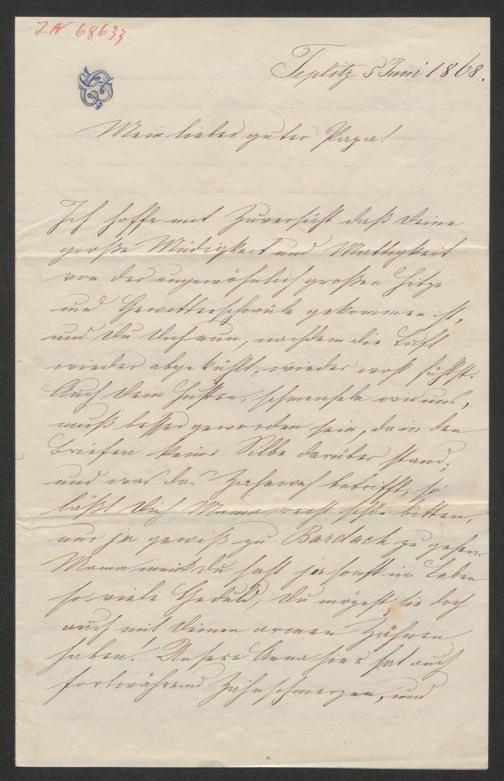 I. N. 68633
Teplitz 5 Juni 1868.
Mein lieber guter Papa!
Ich hoffe mit Zuversicht daß Deine
große Müdigkeit und Mattigkeit
von der ungewöhnlich großen Hitze
und Gewitterschwüle gekommen ist,
und Du Dich nun, nachdem die Luft
wieder abgekühlt, wieder wohl fühlst.
Auch Dein Husten, schmeicheln wir uns,
muß besser geworden sein, da in den
Briefen keine Silbe darüber stand,
und was das Zahnweh betrifft, so
läßt Dich Mama recht schön bitten,
nur ja gewiß zu Bardach zu gehen.
Mama meint Du hast ja sonst im Leben
so viele Geduld, Du mögest sie doch
auch mit Deinen armen Zähnen
haben! Unsere Anna hier hat auch
fortwährend Zahnschmerzen, und